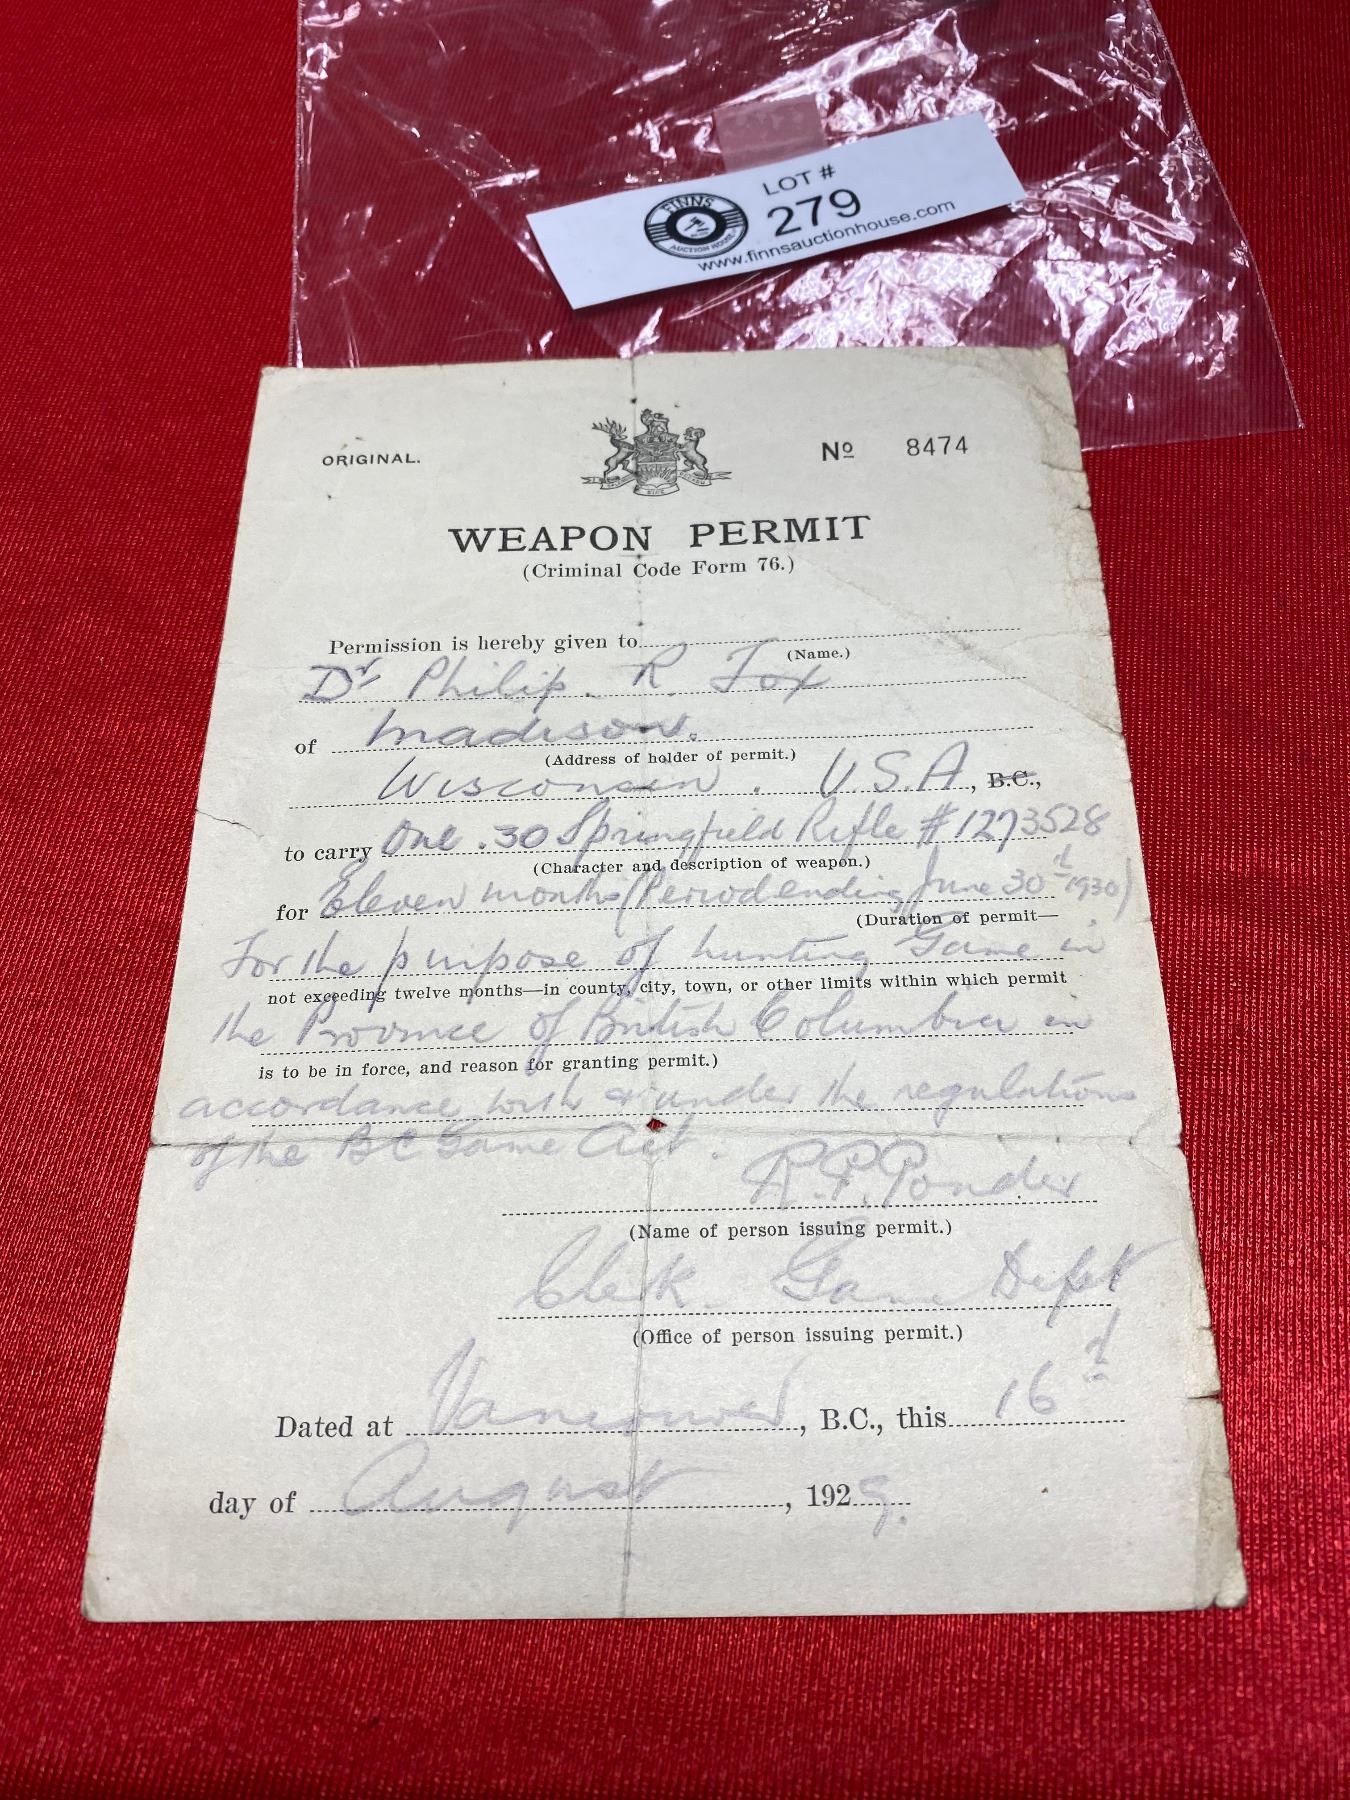 LOT #
279
FINNS
AUCTION HOUSE
www.finnsauctionhouse.com
ORIGINAL.
Nº 8474
WEAPON PERMIT
(Criminal Code Form 76.)
Permission is hereby given to
(Name.)
Dr Philip. R. Fox
of Madison.
(Address of holder of permit.)
Wisconsin. U.S.A., B.C.,
to carry One .30 Springfield Rifle #1273528
(Character and description of weapon.)
for Eleven months (Period ending June 30th 1930)
(Duration of permit—
For the purpose of hunting Game in
not exceeding twelve months—in county, city, town, or other limits within which permit
the Province of British Columbia in
is to be in force, and reason for granting permit.)
accordance with & under the regulations
of the BC Game Act.
R.P. Ponder
(Name of person issuing permit.)
Clerk Game Dept
(Office of person issuing permit.)
Dated at Vancouver, B.C., this 16th
day of August, 1929.